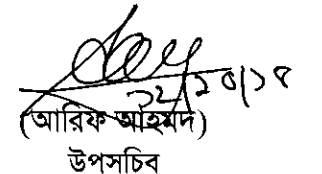 ১২/১০/১৭
(আরিফ আহমদ)
উপসচিব